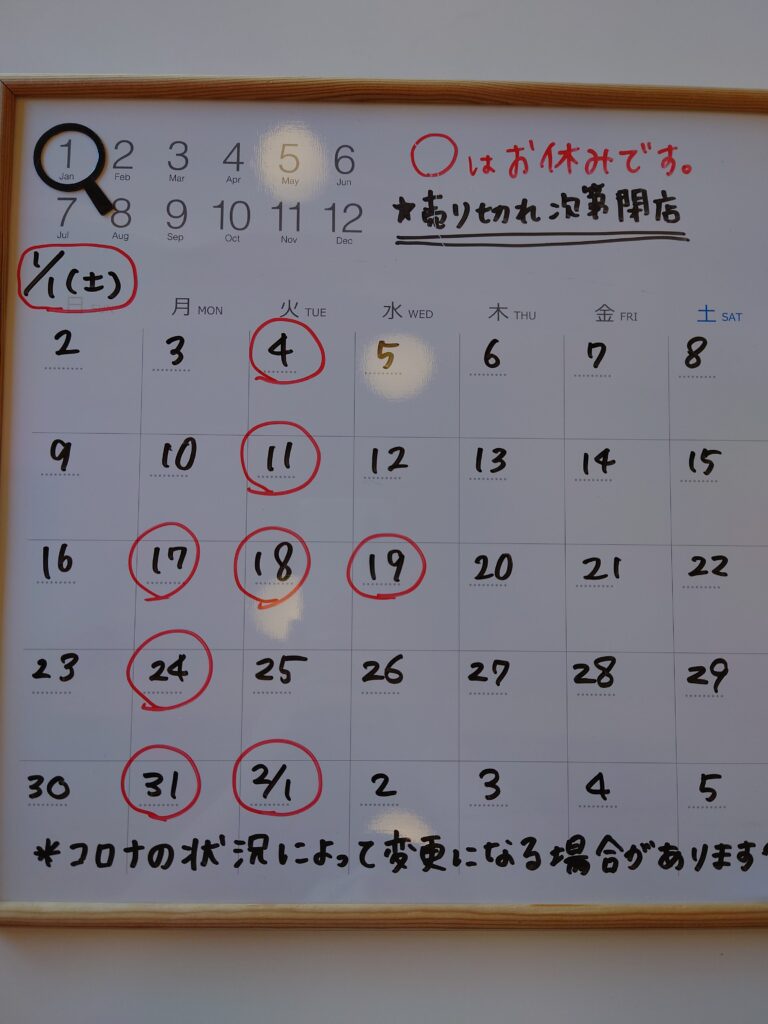 1 2 3 4 5 6
Jan Feb Mar Apr May Jun
○はお休みです。
7 8 9 10 11 12
Jul Aug Sep Oct Nov Dec
★売り切れ次第閉店
1/1(土)
月 MON 火 TUE 水 WED 木 THU 金 FRI 土 SAT
2 3 4 5 6 7 8
9 10 11 12 13 14 15
16 17 18 19 20 21 22
23 24 25 26 27 28 29
30 31 2/1 2 3 4 5
*コロナの状況によって変更になる場合があります